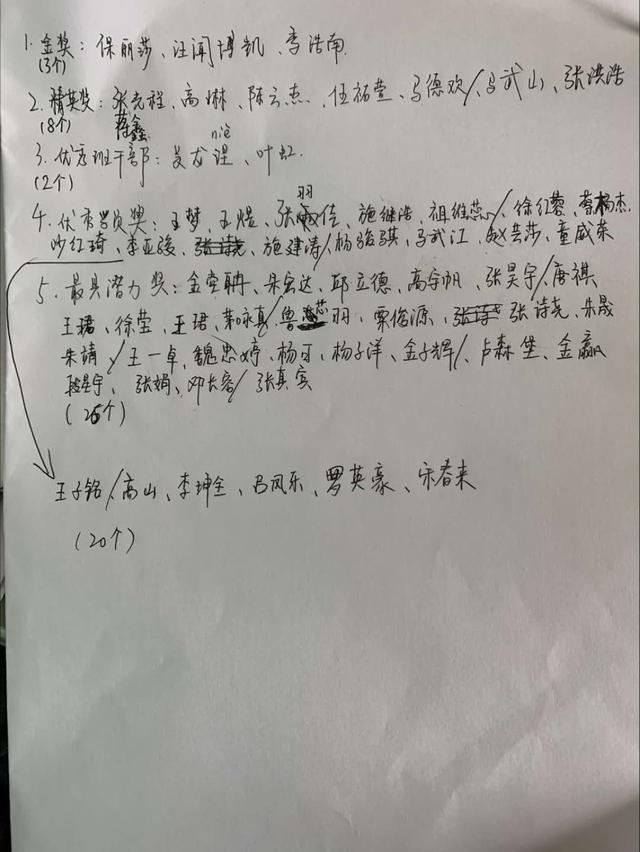 1. 金奖: 保丽莎、汪闻博凯、李浩南
(3个)
2. 精英奖: 张光程、高琳、陈云杰、伍祐萱、马德欢/马武山、张洪浩
(8个) 蒋鑫
3. 优秀班干部: 吴龙涅、叶虹.
nie
(2个)
4. 优秀学员奖: 王梦、王煜、张羽佳、施继浩、祖维蕊/徐红蓉、蔡杨杰.
沙红琦、李亚骏、施建涛/杨骏骐、马武江、赵芸莎、童威荣
5. 最具潜力奖: 金雯聃、朱宏达、邱立德、高宇帆、张昊宇/唐祺
王珺、徐莹、王珺、茅咏真/鲁芯羽、栗俊源、张诗尧、朱晟
朱靖/王一卓、魏思婷、杨可、杨子洋、金子辉/卢森堡、金赢
段星宇、张娟、邓长容/张真宾
(26个)
王子铭/高山、李坤全、吕凤乐、罗英豪、宋春来
(20个)